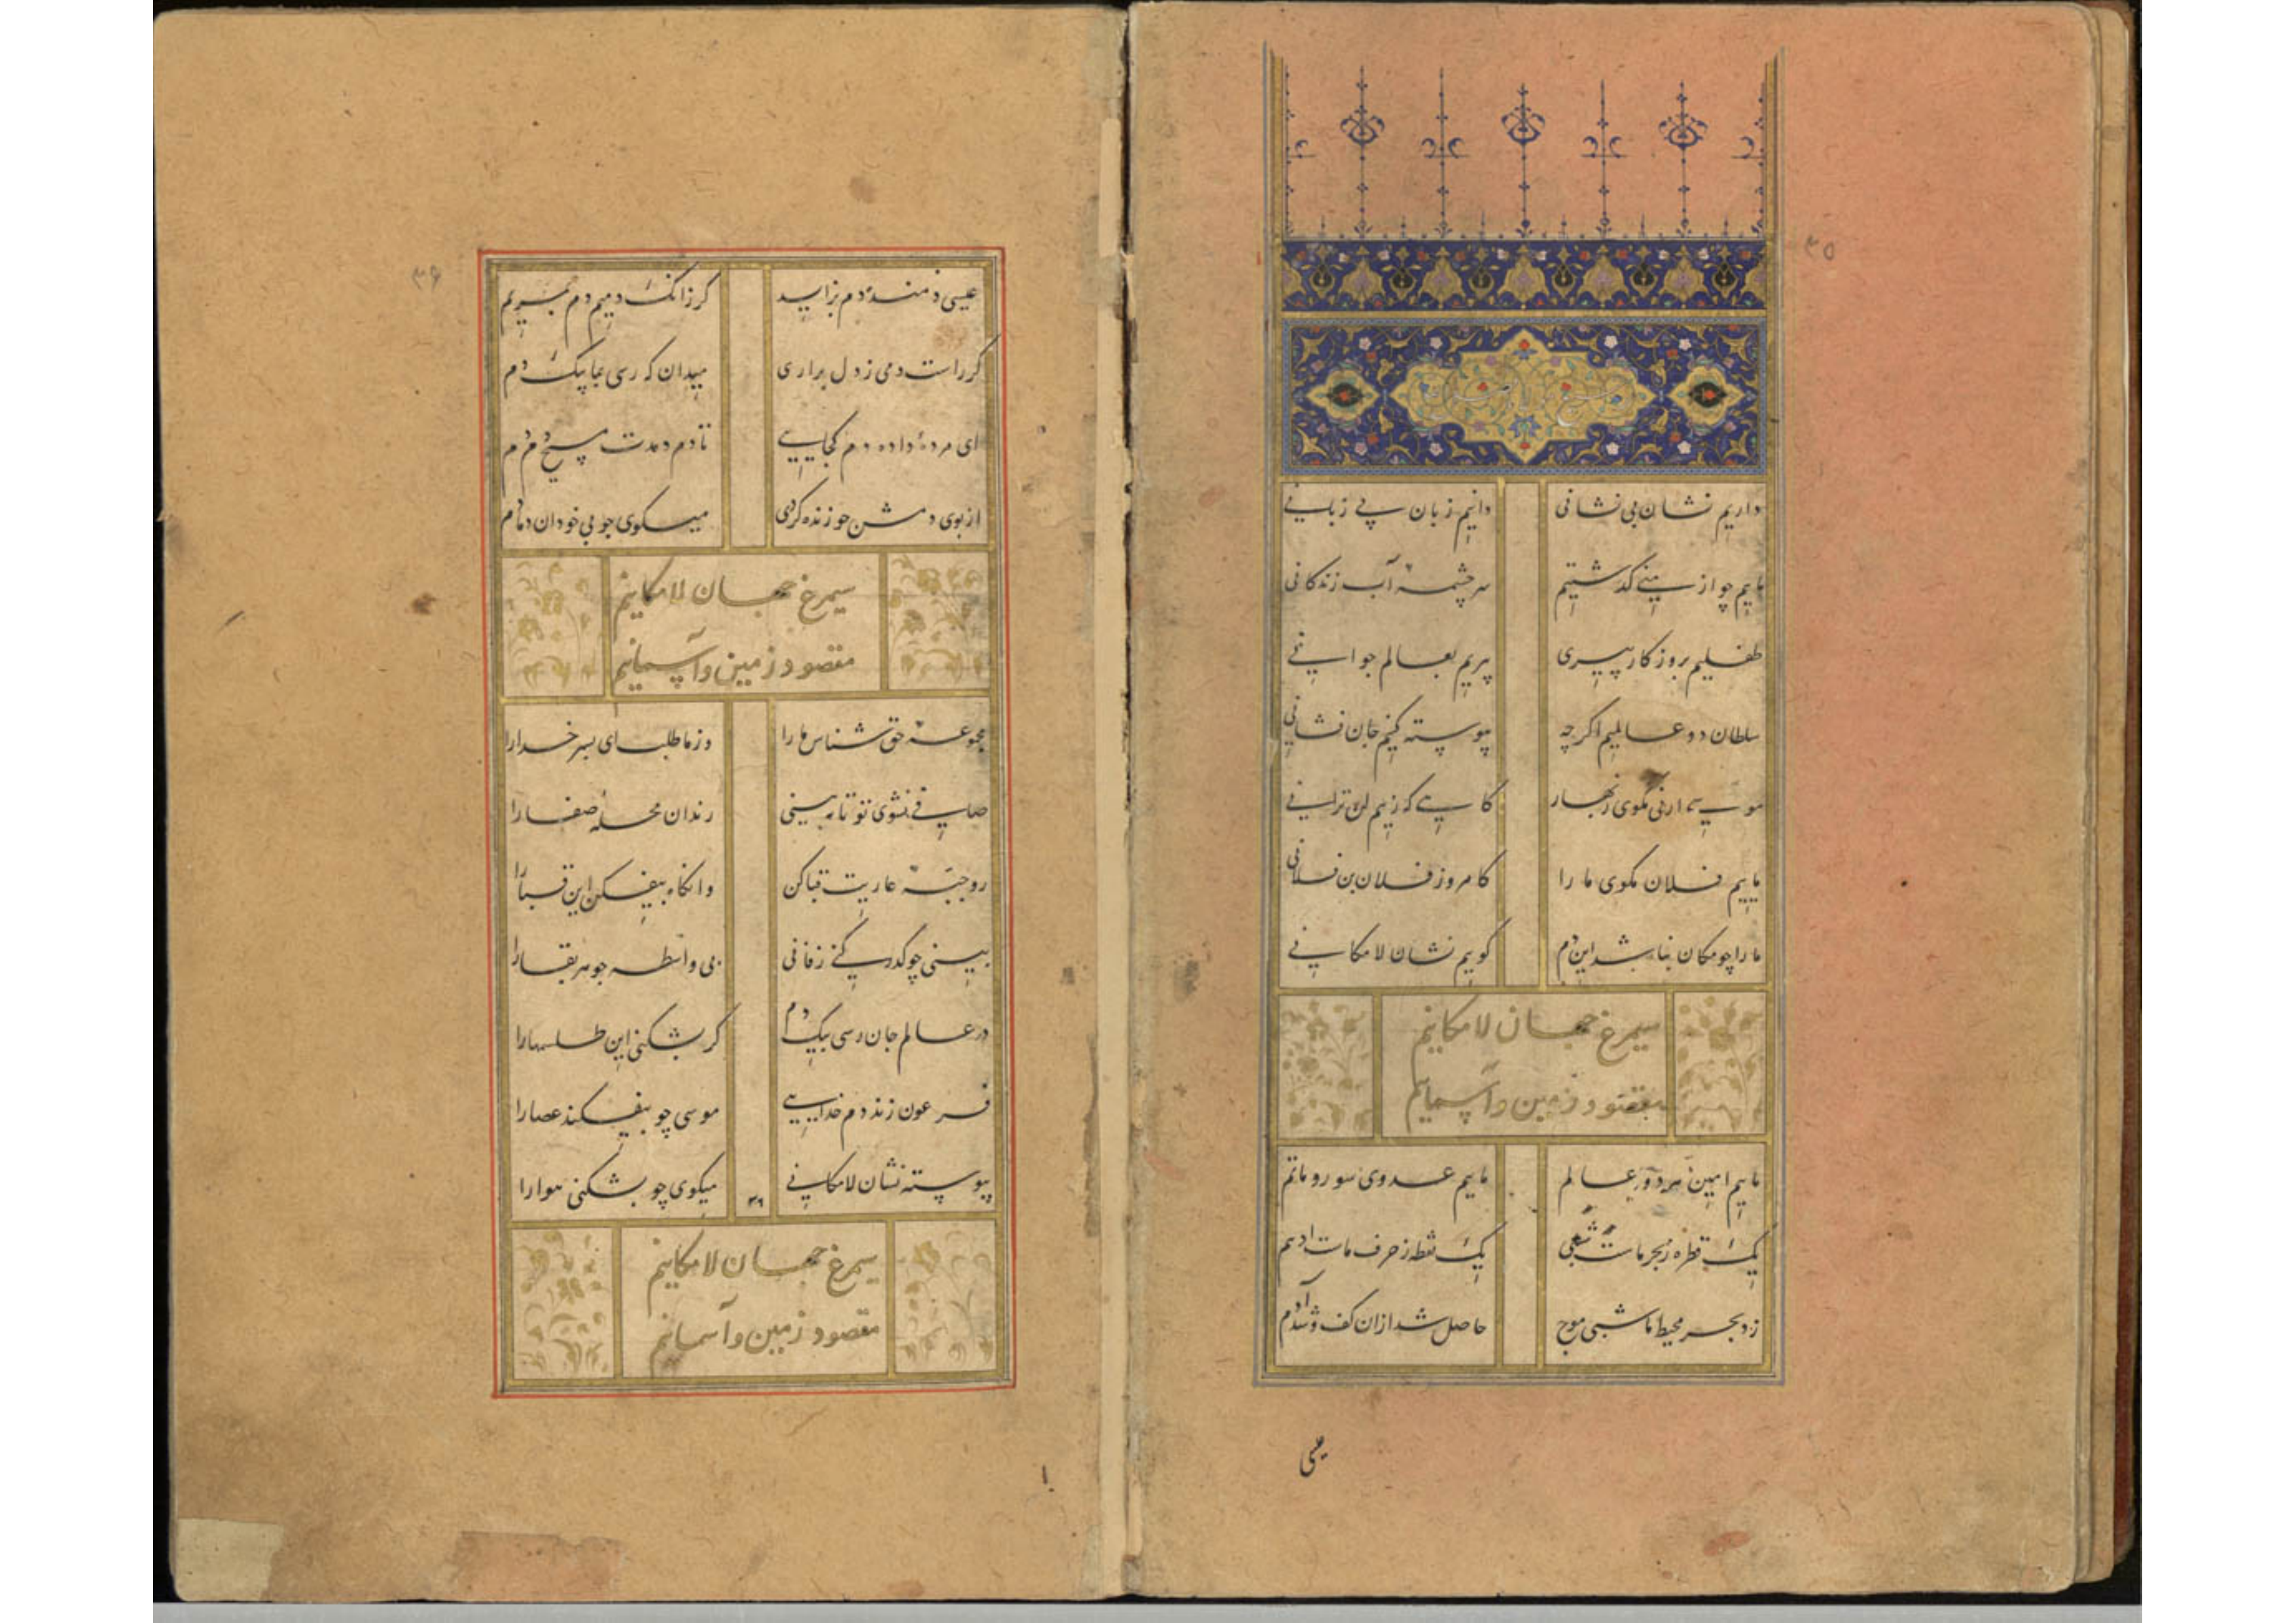 ۳۵
داریم نشان بی نشانی دانیم زبان بی زبانی
ماییم چو از منی گذشتیم سرچشمهٔ آب زندگانی
طفلیم بروزگار پیری پیریم بعالم جوانی
سلطان دو عالمیم اگرچه پیوسته کنیم جان فشانی
موسی ارنی مگوی زنهار کاسی که زنیم لن ترانی
ماییم فلان مگوی ما را کامروز فلان بن فلانی
ما را چو مکان بنا شد این دم گویم نشان لامکانی
سیمرغ جهان لامکانیم
مقصود زمین و آسمانیم
ماییم امین هر دو عالم ماییم عدوی سور و ماتم
یک قطره ز بحر ماست یک نقطه ز حرف ماست
زد بحر محیط ما شبی موج حاصل شد از آن کف و شد آدم
عیسی
۳۶
عیسی دمند دم بزاید گر زانک دمیم دم بمریم
گر راست دمی ز دل براری میدان که رسی بما بیک دم
ای مردهٔ داده دم کجایی تا دم دمدت مسیح مریم
از بوی دمش چو زنده گردی میگوی چو بی خودان دمادم
سیمرغ جهان لامکانیم
مقصود زمین و آسمانیم
مجموعهٔ حق شناس ما را وز ما طلب ای پسر خدا را
صافی نشوی تو تا نبینی رندان محلهٔ صفا را
رو جبهٔ عاریت قبا کن وانگاه بیفکن این قبا را
بینی چو گذر کنی ز فانی بی واسطه جوهر بقا را
در عالم جان رسی بیک دم گر بشکنی این طلسمها را
فرعون زند دم خدایی موسی چو بیفکند عصا را
پیوسته نشان لامکانی میگوی چو بشکنی هوا را
۳۶
سیمرغ جهان لامکانیم
مقصود زمین و آسمانیم